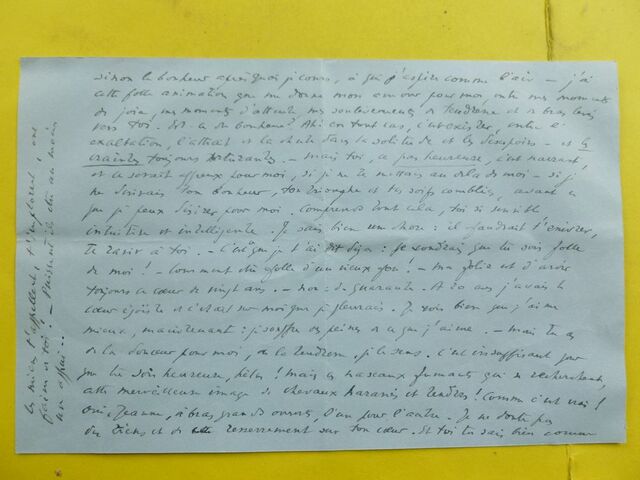 sinon le bonheur après quoi je cours, à qui j'aspire comme l'air – j'ai
cette folle animation que me donne mon amour pour moi, entre mes moments
de joie, mes moments d'attente, mes soulèvements de tendresse et de bras
vers toi. Est-ce du bonheur? Ah! en tout cas, c'est exister, entre l'
exaltation, l'attente et la chute dans la solitude et les désespoirs – et les
craintes toujours torturantes. – Mais toi, ce pas heureuse, c'est navrant,
et ce serait affreux pour moi, si je ne te mettais au delà de moi – si je
ne désirais ton bonheur, ton triomphe et tes soifs comblées, avant ce
que je peux désirer pour moi. Comprends tout cela, toi si sensible
intuitive et intelligente. Je sais bien une chose : il faudrait t'enivrer,
te ravir à toi. – C'est que je t'ai dit déjà : je voudrais que tu sois folle
de moi! – Comment être folle d'un vieux fou! – Ma folie est d'avoir
toujours le cœur de vingt ans. – non : de quarante. A 20 ans j'avais le
cœur égoïste et c'était sur moi que je pleurais. Je vois bien que j'aime
mieux, maintenant : je souffre des peines de ce que j'aime. – Mais tu as
de la douceur pour moi, de la tendresse. je le sens. C'est insuffisant pour
que tu sois heureuse, hélas! Mais ces naseaux fumants qui se recherchent,
cette merveilleuse image de chevaux harassés et tendres! Comme c'est vrai!
Oui, Jeanne, à bras grands ouverts, l'un pour l'autre. Je ne doute pas
des tiens et de resserrement sur ton cœur. Et toi tu sais bien comme
les miens t'appellent, t'implorent, ont
faim de toi! – Puissent-ils être au moins